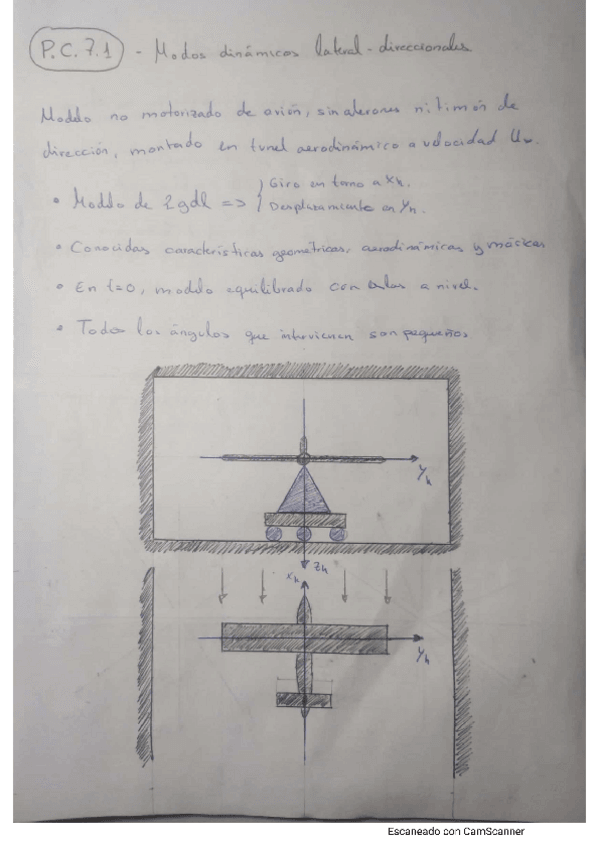 P.C. 7.1 - Modos dinámicos lateral-direccionales
Modelo no motorizado de avión, sin alerones ni timón de
dirección, montado en tunel aerodinámico a velocidad U∞.
• Modelo de 2 gdl => { Giro en torno a Xh.
Desplazamiento en Yh.
• Conocidas características geométricas, aerodinámicas y másicas
• En t=0, modelo equilibrado con alas a nivel.
• Todos los ángulos que intervienen son pequeños
Yh
Zh
Xh
Yh
Escaneado con CamScanner